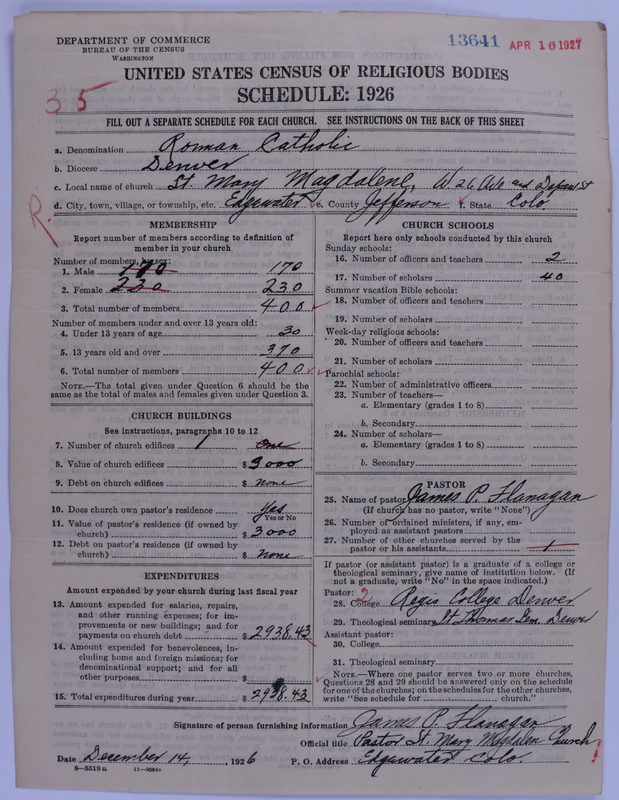 DEPARTMENT OF COMMERCE
BUREAU OF THE CENSUS
WASHINGTON
13641 APR 18 1927
UNITED STATES CENSUS OF RELIGIOUS BODIES
SCHEDULE: 1926
35
FILL OUT A SEPARATE SCHEDULE FOR EACH CHURCH. SEE INSTRUCTIONS ON THE BACK OF THIS SHEET
a. Denomination Roman Catholic
b. Diocese Denver
c. Local name of church St. Mary Magdalene, W 26 Ave and St
d. City, town, village, or township, etc. Edgewater e. County Jefferson f. State Colo
R.
MEMBERSHIP
Report number of members according to definition of
member in your church
Number of members, by sex:
1. Male 170 170
2. Female 230 230
3. Total number of members 400
Number of members under and over 13 years old:
4. Under 13 years of age 30
5. 13 years old and over 370
6. Total number of members 400
NOTE.—The total given under Question 6 should be the
same as the total of males and females given under Question 3.
CHURCH BUILDINGS
See instructions, paragraphs 10 to 12
7. Number of church edifices 1 One
8. Value of church edifices $ 3000
9. Debt on church edifices $ none
10. Does church own pastor's residence Yes
Yes or No
11. Value of pastor's residence (if owned by
church) $ 3000
12. Debt on pastor's residence (if owned by
church) $ None
EXPENDITURES
Amount expended by your church during last fiscal year
13. Amount expended for salaries, repairs,
and other running expenses; for im-
provements or new buildings; and for
payments on church debt $ 2938.43
14. Amount expended for benevolences, in-
cluding home and foreign missions; for
denominational support; and for all
other purposes $
15. Total expenditures during year $ 2938.43
CHURCH SCHOOLS
Report here only schools conducted by this church
Sunday schools:
16. Number of officers and teachers 2
17. Number of scholars 40
Summer vacation Bible schools:
18. Number of officers and teachers
19. Number of scholars
Week-day religious schools:
20. Number of officers and teachers
21. Number of scholars
Parochial schools:
22. Number of administrative officers
23. Number of teachers—
a. Elementary (grades 1 to 8)
b. Secondary
24. Number of scholars—
a. Elementary (grades 1 to 8)
b. Secondary
PASTOR
25. Name of pastor James P. Flanagan
(If church has no pastor, write "None")
26. Number of ordained ministers, if any, em-
ployed as assistant pastors
27. Number of other churches served by the
pastor or his assistants 1
If pastor (or assistant pastor) is a graduate of a college or
theological seminary, give name of institution below. (If
not a graduate, write "No" in the space indicated.)
Pastor: 2
28. College Regis College Denver
29. Theological seminary St Thomas Sem. Denver
Assistant pastor:
30. College
31. Theological seminary
NOTE.—Where one pastor serves two or more churches,
Questions 28 and 29 should be answered only on the schedule
for one of the churches; on the schedules for the other churches,
write "See schedule for church."
Signature of person furnishing information James P. Flanagan
Official title Pastor St. Mary Magdalen Church
Date December 14, , 1926 P. O. Address Edgewater Colo.
8—5518a